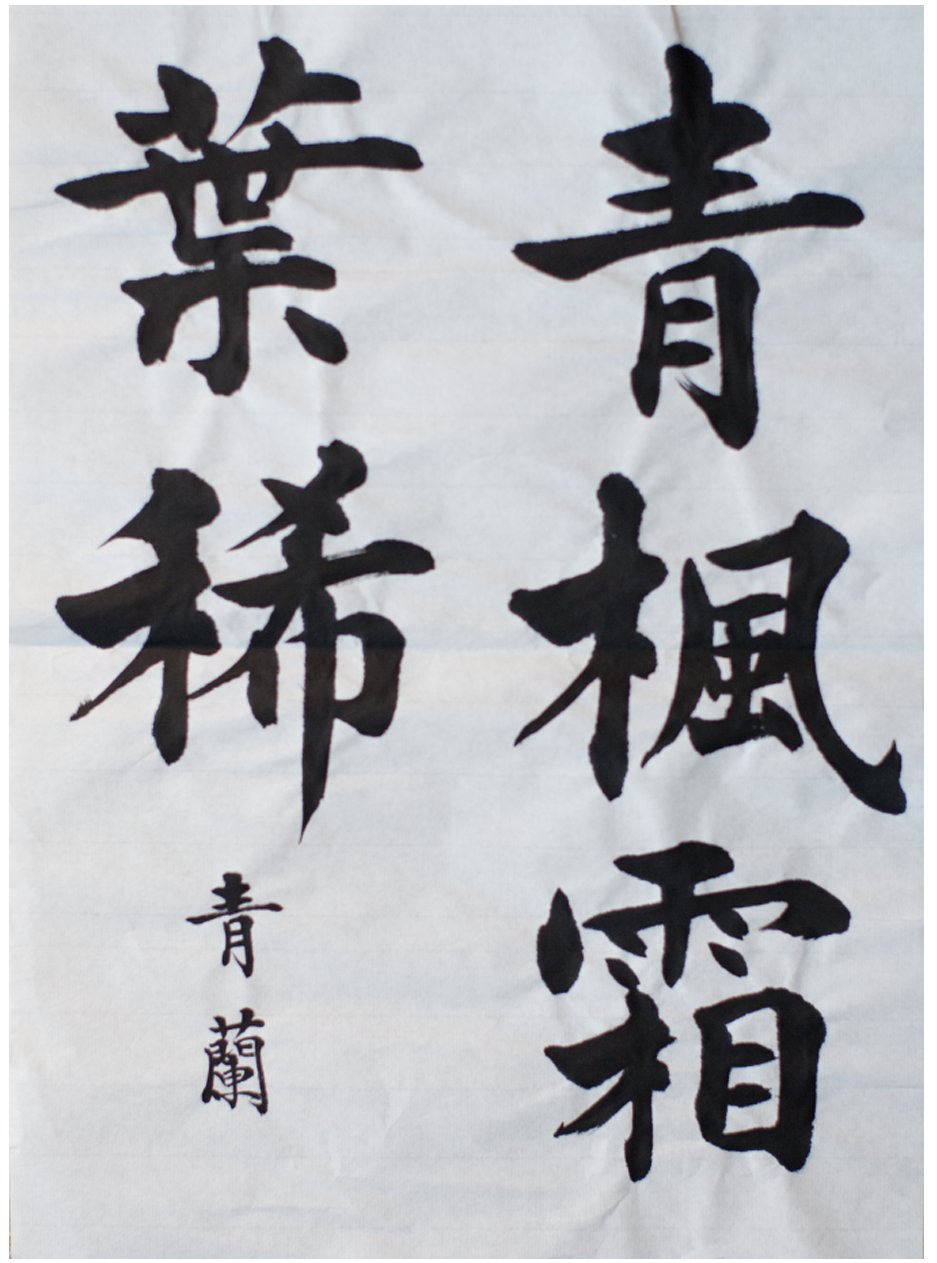 青楓霜
葉稀
青蘭